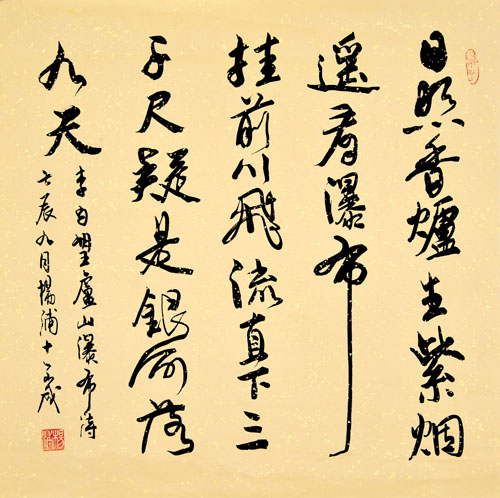 日照香爐生紫烟
遥看瀑布
挂前川飛流直下三
千尺疑是銀河落
九天
李白望廬山瀑布诗
壬辰九月楊浦